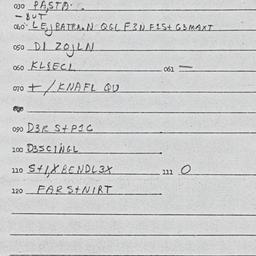 030 PASTA.
- BUT
040 LEJBATRA.N QGL F3N F1S+ G3MAXT
050 DI ZOJLN
060 KLSECL 061 —
070 + / KNAFL QU
090 D3R S+P1G
100 D3SCINGL
110 S+1XBENDL3X 111 O
120 FARS+NIRT